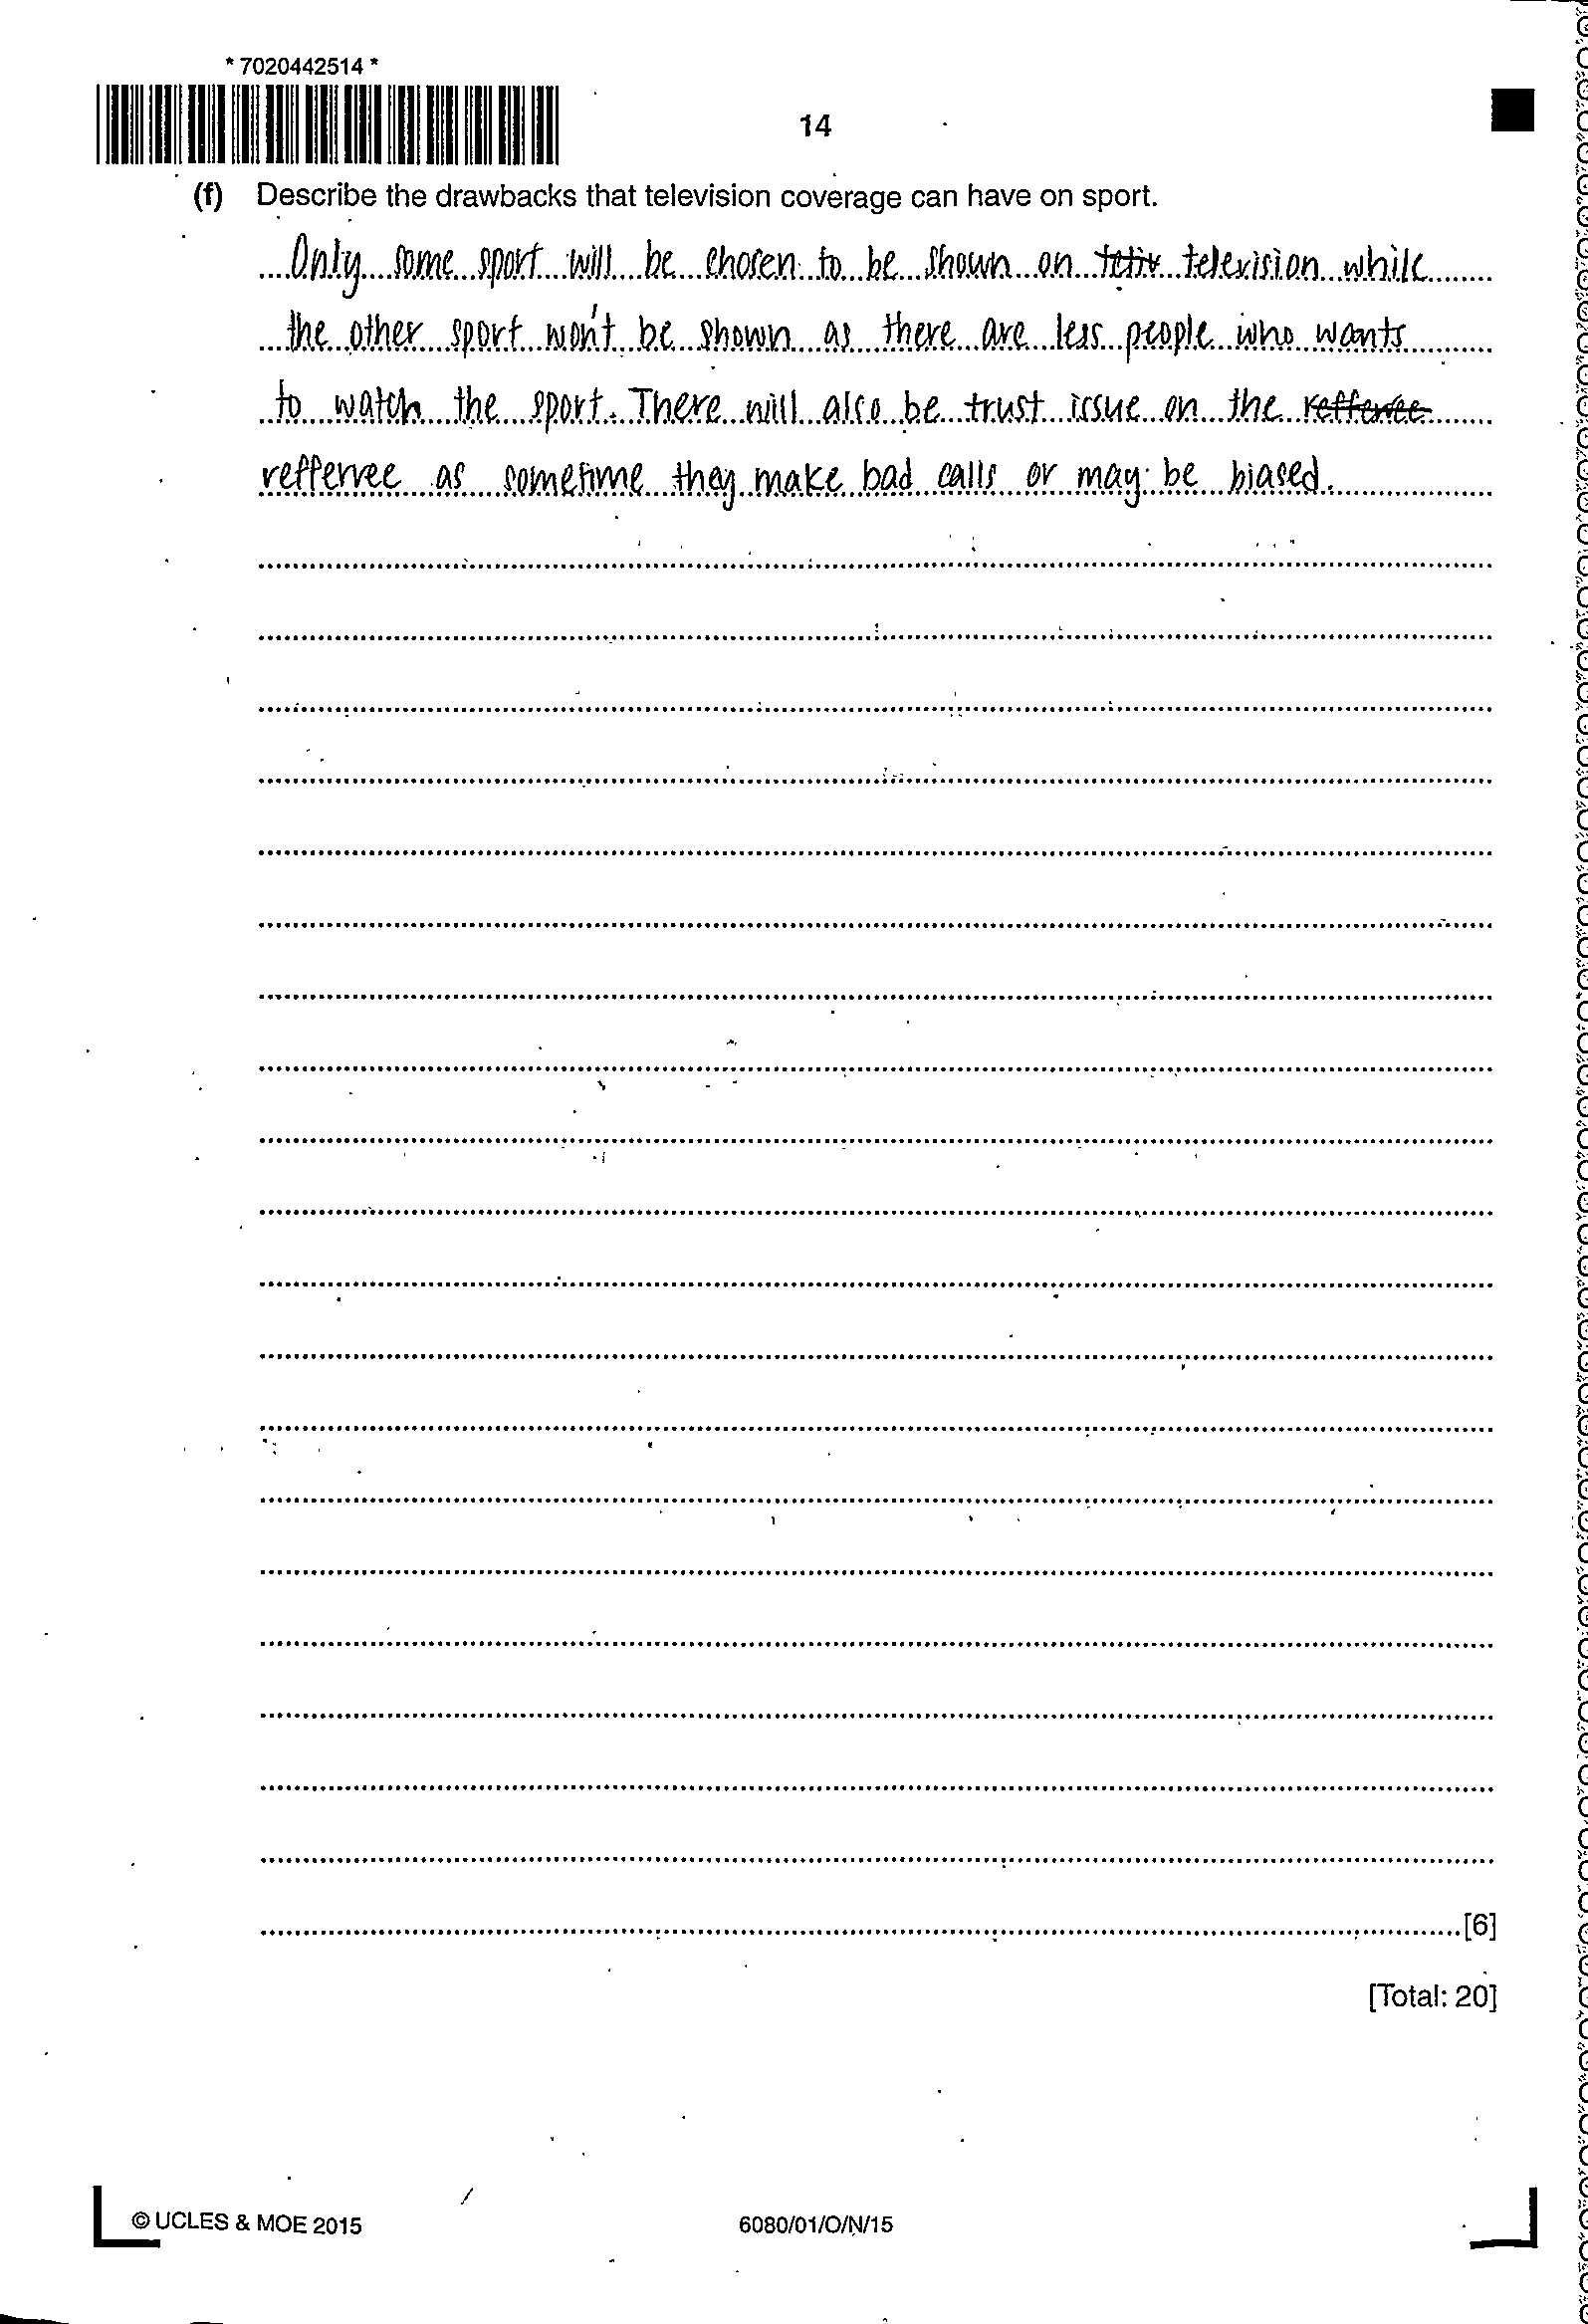 * 7020442514 *
14
(f) Describe the drawbacks that television coverage can have on sport.
Only some sport will be chosen to be shown on television while
the other sport won't be shown as there are less people who wants
to watch the sport. There will also be trust issue on the
refferree as sometime they make bad calls or may be biased.
[6]
[Total: 20]
© UCLES & MOE 2015
6080/01/O/N/15